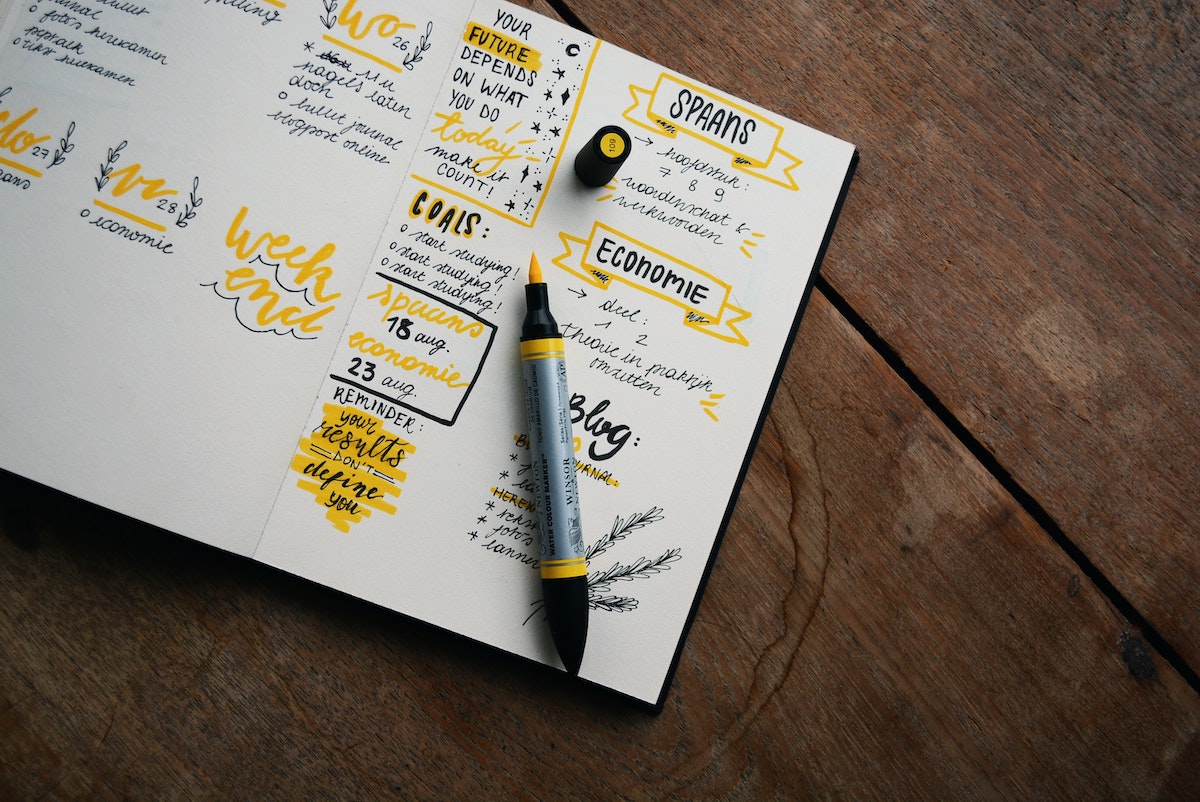 jotos herexamen
peptalk
o tiks herexamen
Wo 26
* 11 u
nagels laten
doen
o bullet journal
blogpost online
do 27
vr 28
o economie
Week
end
YOUR
FUTURE
DEPENDS
ON WHAT
YOU DO
today
make it
COUNT!
GOALS:
o start studying!
o start studying!
o start studying!
spaans
18 aug.
economie
23 aug.
REMINDER:
your
results
DON'T
define
you
109
SPAANS
→ hoofdstuk:
7 8 9
woordenschat &
werkwoorden
ECONOMIE
→ deel:
1 2
theorie in praktijk
omzetten
Blog:
JOURNAL:
HEREX
*
*
*
WATER COLOUR MARKER™
WINSOR
NEWTON